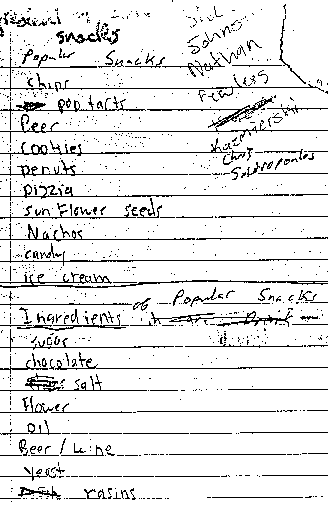 snacks
Popular Snacks
Chips
pop tarts
Beer
cookies
penuts
pizzia
sun Flower seeds
Nachos
candy
ice cream
Johns
Nathan
Fowlers
Chris
Ingredients of Popular Snacks
sugar
chocolate
salt
Flower
oil
Beer / wine
yeast
rasins